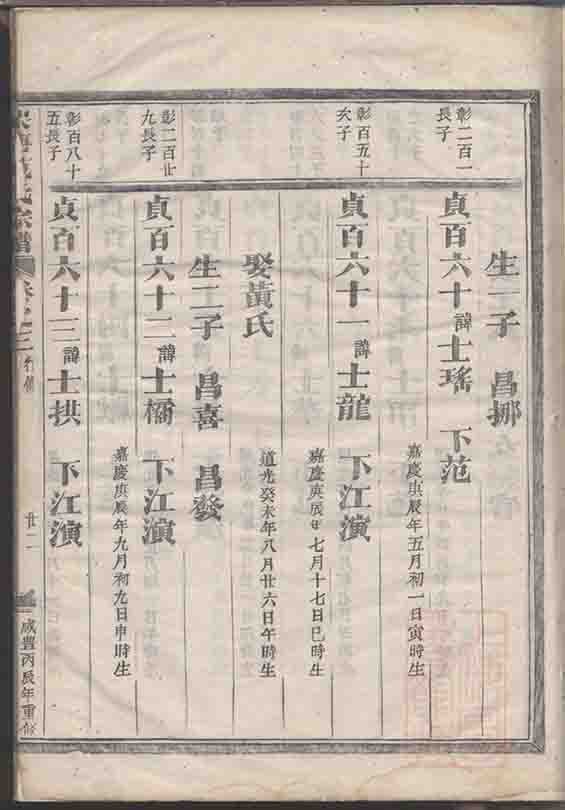 生一子 昌挪
彰二百一
長子
貞百六十諱士瑤 下范
嘉慶庚辰年五月初一日寅時生
彰百五十
六子
貞百六十一諱士龍 下江演
嘉慶庚辰年七月十七日巳時生
娶黃氏
道光癸未年八月廿六日午時生
生二子 昌喜 昌發
彰二百廿
九長子
貞百六十二諱士橘 下江演
嘉慶庚辰年九月初九日申時生
彰百八十
五長子
貞百六十三諱士拱 下江演
氏宗譜
卷之三
行傳
廿二
咸豐丙辰年重修